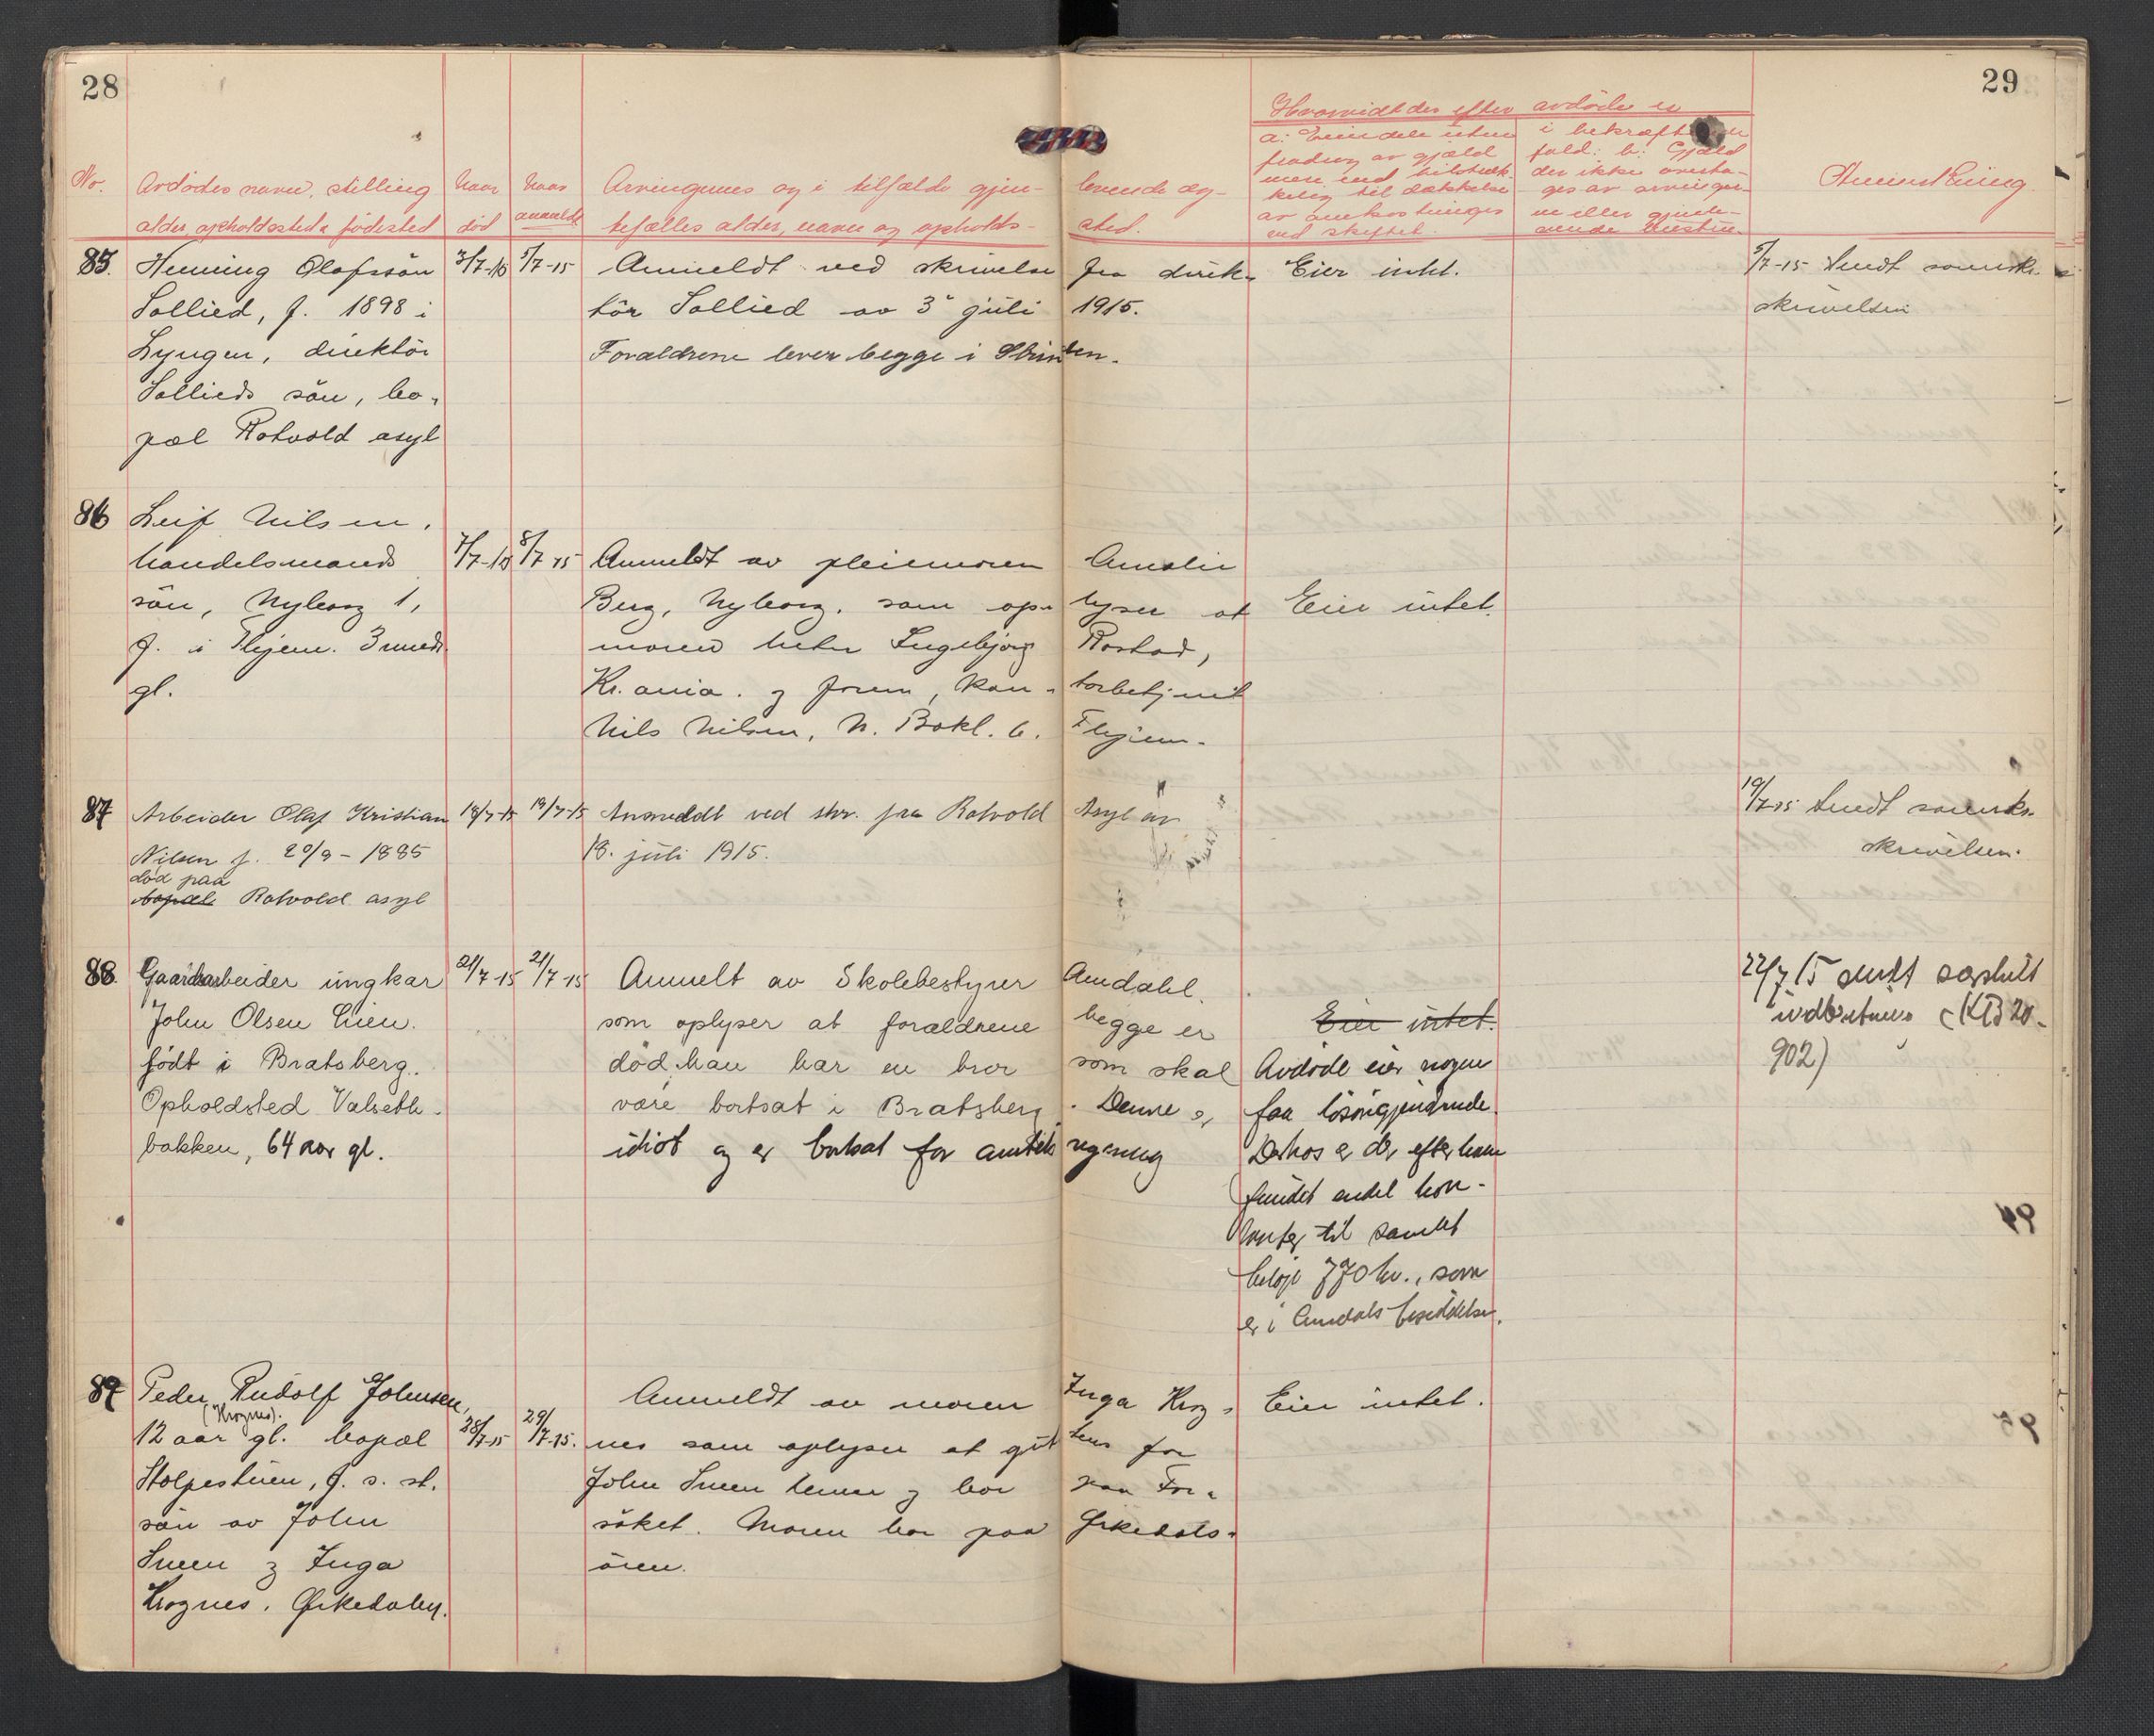 28
29
Hvorvidt der efter avdöde er
a: Eiendele uten fradrag av gjæld mere end tilstrækkelig til dækkelse av omkostninger ved skiftet.
i bekræftende fald: b: Gjæld der ikke overtages av arvingerne eller gjenlevende
No.
Avdödes navn, stilling alder, opholdssted & födested
Naar död
Naar anmeldt
Arvingernes og i tilfælde gjenlevende ægtefælles alder, navn og opholdssted.
Anmerkning.
85. Henning Olafssön
Sollied, f. 1898 i
Lyngen, direktör
Sollieds sön, bo-
pæl Rotvold asyl
3/7-15
5/7-15
Anmeldt ved skrivelse fra direk-
tör Sollied av 3 juli 1915.
Forældrene lever begge i Strinden.
Eier intet.
5/7-15 Sendt
skrivelsen
86 Leif Nilsen,
handelsmands
sön, Nyborg 1,
f. i Thjem. 3 mndr
gl.
7/7-15
8/7 15
Anmeldt av pleiemoren Amalie
Berg, Nyborg, som oplyser at
moren heter Ingebjørg Rostad,
Kr.ania. og faren, kontorbetjent
Nils Nilsen, N. Bakl. 6. Thjem.
Eier intet.
87 Arbeider Olaf Kristian
Nilsen f. 20/9-1885
död paa
bopæl Rotvold asyl
18/7-15
19/7-15
Anmeldt ved skr. fra Rotvold Asyl av
18. juli 1915.
19/7-15 Sendt
skrivelsen.
88. Gaardsarbeider ungkar
John Olsen Lien.
født i Bratsberg.
Opholdsted Valseth-
bakken, 64 aar gl.
21/7-15
21/7-15
Anmelt av Skolebestyrer Amdahl.
som oplyser at forældrene begge er
död, han har en bror som skal
være bortsat i Bratsberg. Denne er
idiot og er bortsat for amtets regning
Eier intet.
Avdöde eier nogen
faa lösöregjenstande
Derhos er der efter ham
fundet endel kon-
tanter til samlet
beløp 770 kr., som
er i Amdals besiddelse.
22/7 15 sendt
902)
89 Peder Rudolf Johnsen,
(Krognes).
12 aar gl. bopæl
Stolpestuen, f. s. st.
sön av John
Smen og Inga
Krognes, Ørkedalen.
28/7-15
29/7-15.
Anmeldt av moren Inga Krog-
nes som oplyser at guttens far
John Smen lever og bor paa For-
söket. Moren bor paa Ørkedals-
ören.
Eier intet.